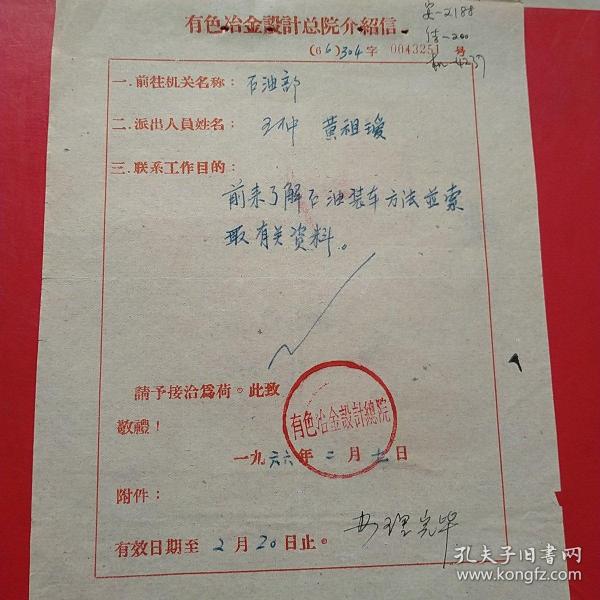 有色冶金設計总院介紹信
(66)304字 0043251 号
安-2188
一.前往机关名称：石油部
二.派出人員姓名：王仲 黄祖瑷
三.联系工作目的：
前来了解石油装车方法並索
取有关资料。
請予接洽爲荷。此致
敬禮！
有色冶金設計總院
一九六六年二月十二日
附件：
办理完毕
有效日期至2月20日止。
孔夫子旧书网
www.kongfz.com